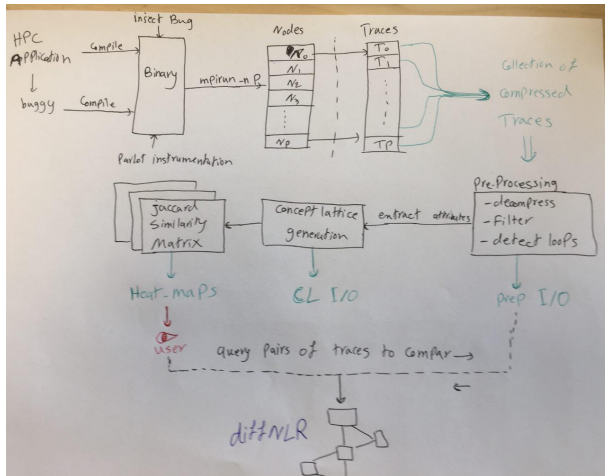 HPC
Application
buggy
Compile
Compile
insect Bug
Binary
Parlot instrumentation
mpirun -n P
Nodes
N0
N1
N2
N3
Np
Traces
T0
T1
TP
Cllection of
Compressed
Traces
Pre-Processing
- decompress
- Filter
- detect loops
extract attributes
Concept lattice
generation
Jaccard
Similarity
Matrix
Heat-maps
CL I/O
prep I/O
user
query pairs of traces to compar
diffNLR